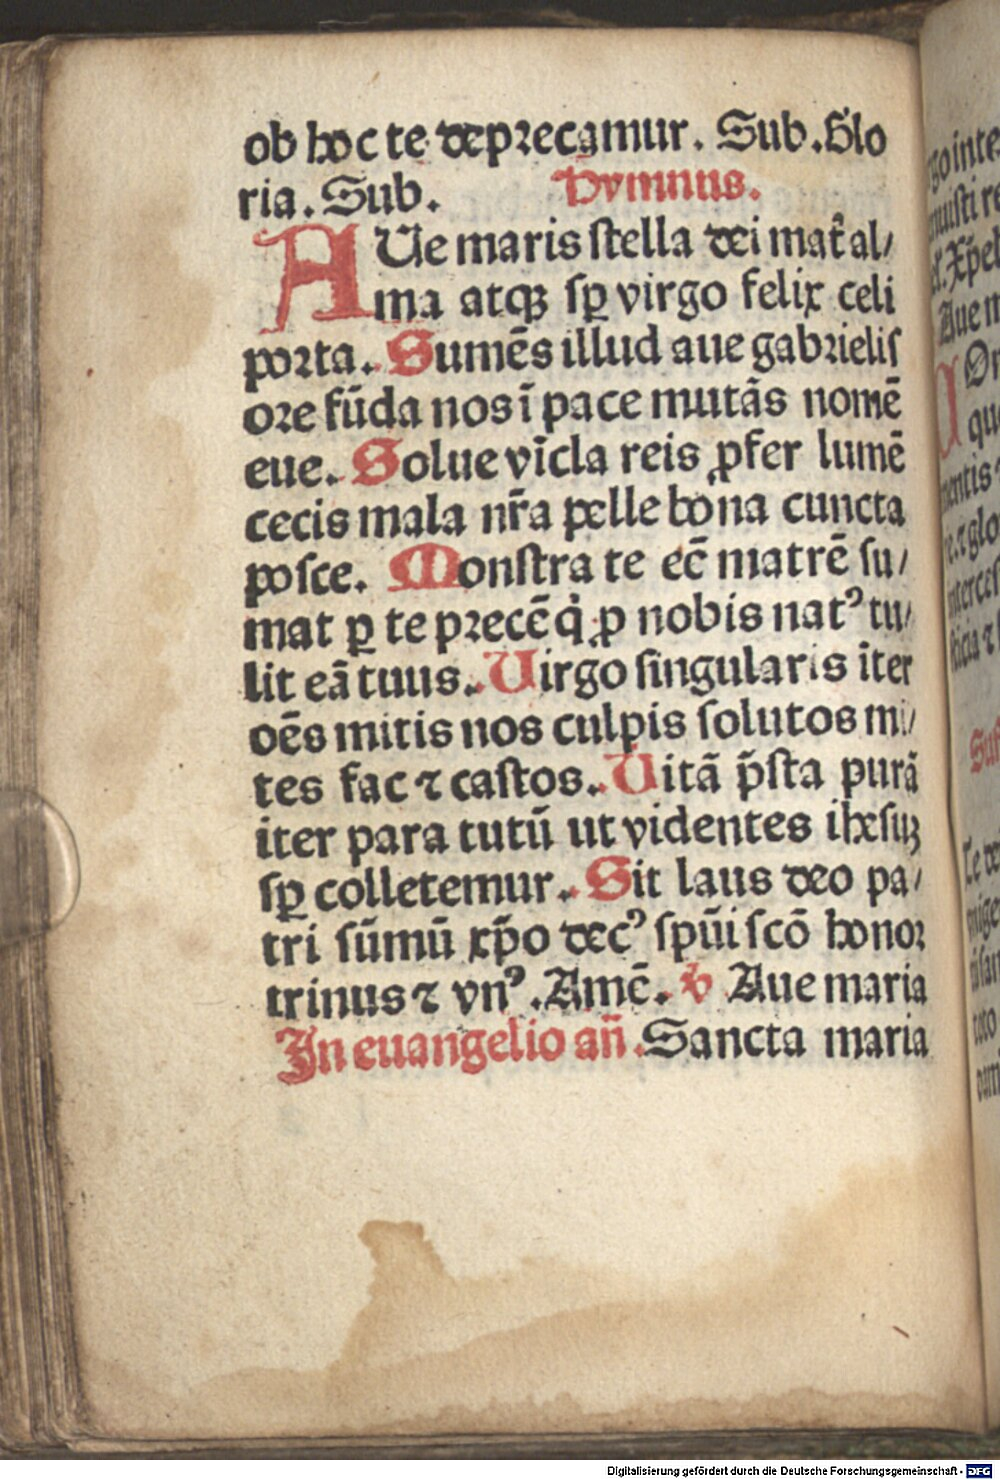 ob hoc te deprecamur. Sub. Glo
ria. Sub. Hymnus.
AUe maris stella dei mat̉ al/
ma atqꝫ sꝑ virgo felix celi
porta. Sumēs illud aue gabrielis
ore fūda nos ī pace mutās nomē
eue. Solue vīcla reis ꝓfer lumē
cecis mala nr̄a pelle bona cuncta
posce. Monstra te eē matrē su/
mat ꝑ te precē q̇ ꝓ nobis natꝰ tu/
lit eā tuus. Uirgo singularis īter
oēs mitis nos culpis solutos mi/
tes fac ⁊ castos. Uitā p̄sta purā
iter para tutū ut videntes ihesuꝫ
sꝑ colletemur. Sit laus deo pa/
tri sūmū xp̄o decꝰ spūi scō honor
trinus ⁊ vnꝰ. Amē. v Aue maria
In euangelio an̄. Sancta maria
Digitalisierung gefördert durch die Deutsche Forschungsgemeinschaft - DFG